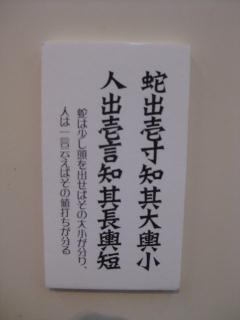 蛇出壱寸知其大與小
人出壱言知其長與短
蛇は少し頭を出せばその大小が分り、
人は一言云えばその値打ちが分る